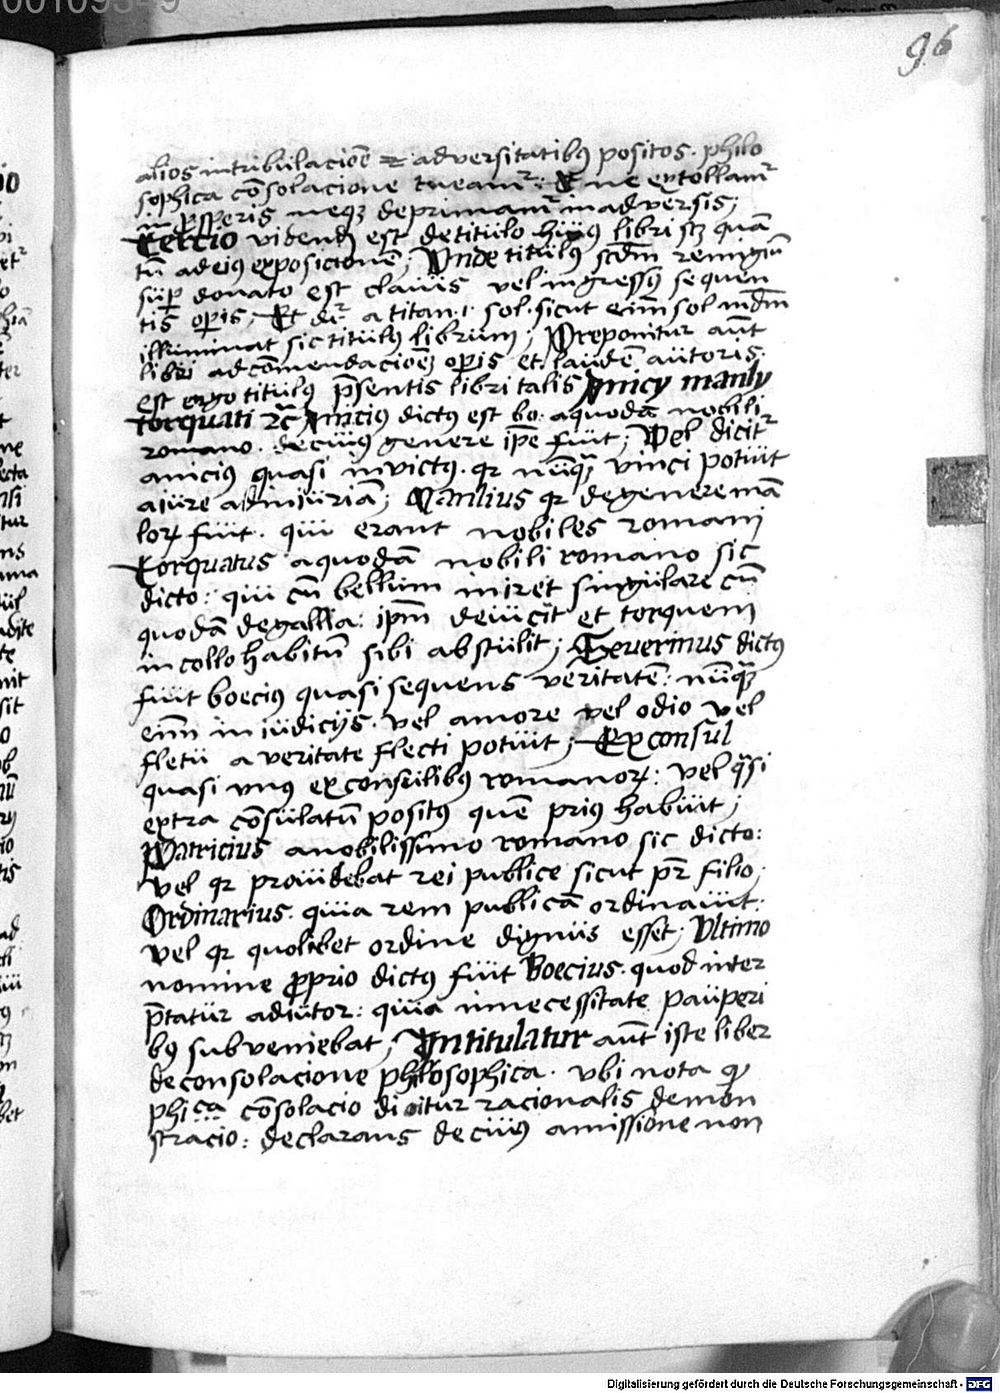 96
alios in tribulacio̅e et adversitatibꝰ positos. philo
sophica co̅solacione tueam̅r: Et ne extollam̅r
in ꝓsperis neqꝫ deprimam̅r in adversis;
Tercio videnđ est de titulo huiꝰ libri scꝫ qua̅
tu̅ ad eiꝰ exposicione̅; Vnde titulꝰ scđm remigiu̅
suꝑ donato est clauis vel ingressꝰ sequen
tis oꝑis; Et dr̅ a titan .i. sol. sicut eni̅ sol mu̅dm̅
illuminat sic titulꝰ librum; Preponitur aut̅
libri ad co̅mendacio̅eꝫ oꝑis et laude̅ autoris.
est ergo titulꝰ p̅sentis libri talis Anicy manly
torquati ꝛc̅ Anicius dictꝰ est bo. a quoda̅ nobili
romano. de cuiꝰ genere ip̅e fuit; Vel dicit̅r
anicius quasi invictꝰ. qꝛ nu̅qꝫ vinci potuit
a iure ad iniuria̅; Manlius qꝛ de genere ma̅
loꝝ fuit. qui erant nobiles romani
Torquatus a quoda̅ nobili romano sic
dicto: qui cu̅ bellum iniret singulare cu̅
quoda̅ de gallia: ip̅m devicit et torquem
in collo habitu̅ sibi abstulit; Severinus dictꝰ
fuit boeciꝰ quasi sequens veritate̅: nu̅qꝫ
eni̅ in iudicijs. vel amore vel odio vel
fletu a veritate flecti potuit; Ex consul
quasi vnꝰ ex consulibꝰ romanoꝝ: vel qͣsi
extra co̅sulatu̅ positꝰ que̅ priꝰ habuit;
Patricius a nobilissimo romano sic dicto:
vel qꝛ providebat rei publice sicut pr̅ filio;
Ordinarius. quia rem publica̅ ordinauit:
vel qꝛ quolibet ordine dignus esset; Vltimo
nomine ꝓprio dictꝰ fuit Boecius. quod inter
p̅tatur adiutor: quia in necessitate pauperi
bꝰ subveniebat; Intitulatur aut̅ iste liber
de consolacione philosophica. vbi nota ꝙ
phi̅ca co̅solacio dicitur racionalis demon
stracio: declarans de cuiꝰ amissione non
Digitalisierung gefördert durch die Deutsche Forschungsgemeinschaft - DFG